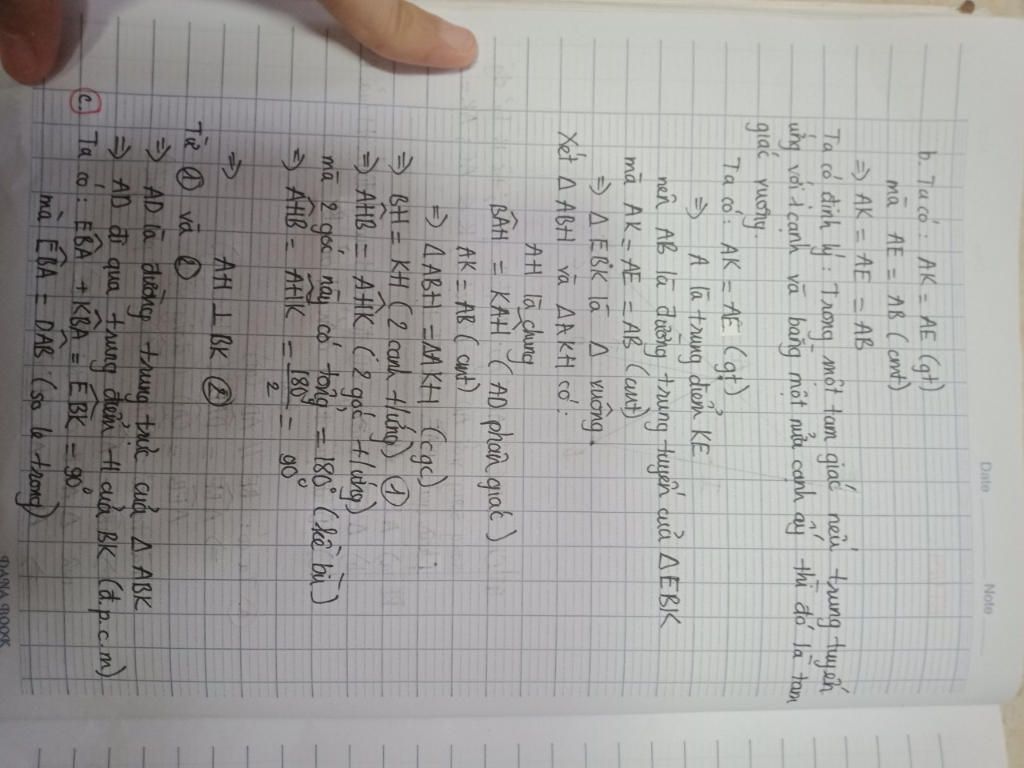 Date
Note
b. Ta có: AK = AE (gt)
mà AE = AB (cmt)
⇒ AK = AE = AB
Ta có định lý: Trong một tam giác nếu trung tuyến
ứng với 1 cạnh và bằng một nửa cạnh ấy thì đó là tam
giác vuông.
Ta có: AK = AE (gt)
⇒ A là trung điểm KE
nên AB là đường trung tuyến của Δ EBK
mà AK = AE = AB (cmt)
⇒ Δ EBK là Δ vuông.
Xét Δ ABH và Δ AKH có:
AH là chung
BÂH = KÂH (AD phân giác)
AK = AB (cmt)
⇒ Δ ABH = Δ AKH (cgc)
⇒ BH = KH (2 cạnh t/ứng) ①
⇒ AĤB = AĤK (2 góc t/ứng)
mà 2 góc này có tổng = 180° (kề bù)
⇒ AĤB = AĤK = 180°/2 = 90°
⇒ AH ⊥ BK ②
Từ ① và ②
⇒ AD là đường trung trực của Δ ABK
⇒ AD đi qua trung điểm H của BK (đ.p.c.m)
c. Ta có: EB̂A + KB̂A = EB̂K = 90°
mà EB̂A = DÂB (so le trong)